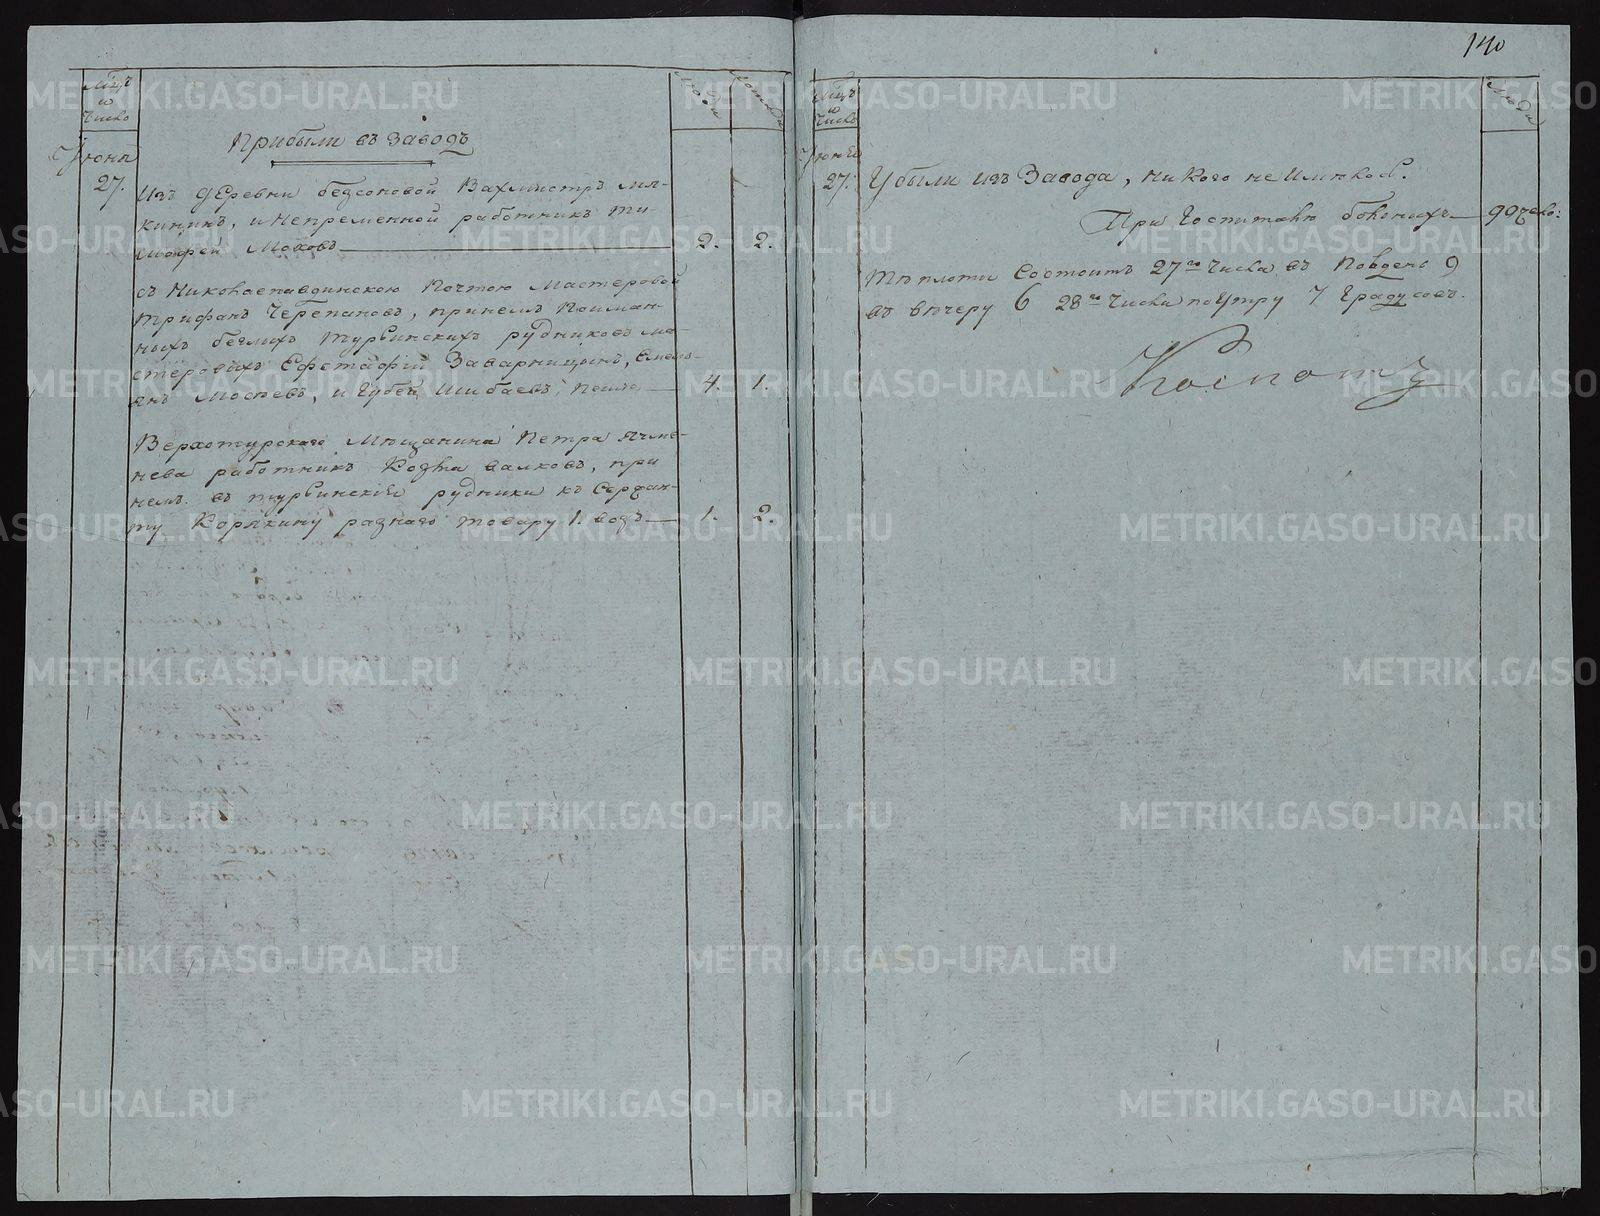 140
Мцъ
и
Число
Люди
Лошади
Прибыли въ Заводъ
Июня
27.
Изъ деревни безсоновой Вахмистръ Мя-
кининъ, и Непременной работникъ Ти-
мофей Моховъ 2. 2.
съ Николаепавдинскою Почтою Мастеровой
Трифанъ Черепановъ, привелъ Пойман-
ныхъ беглыхъ Турьинскихъ рудниковъ ма-
стеровыхъ Ефстафий Заварницынъ, Емель-
янъ Мосеевъ, и Шибаевъ, 4. 1.
Верхотурскаго Мещанина Петра Ячме-
нева работникъ Козма валковъ, при
немъ въ турьинские рудники къ Сержан-
ту Корякину разнаго товару 1. возъ 1. 2.
Мцъ
и
Число
Люди
Июня
27.
Убыли изъ Завода, никого не имелось.
При Госпитале больныхъ 99 чело:
Теплоты Состоитъ 27го Числа въ Полдень 9
въ вечеру 6 28го Числа поутру 7 Градусовъ.
METRIKI.GASO-URAL.RU